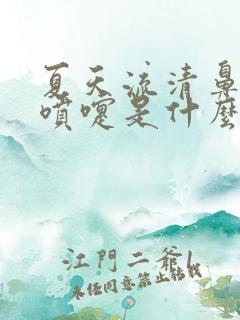 夏天流清鼻
噴嚏是什麼
江門二爺
未經同意禁止轉載